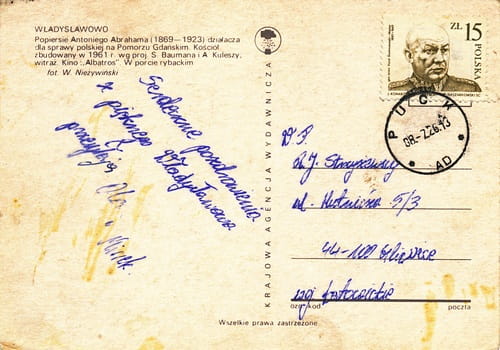 WŁADYSŁAWOWO
Popiersie Antoniego Abrahama (1869—1923) działacza
dla sprawy polskiej na Pomorzu Gdańskim. Kościół
zbudowany w 1961 r. wg proj. S. Baumana i A. Kuleszy,
witraż. Kino „Albatros". W porcie rybackim
fot. W. Nieżywiński
Serdeczne pozdrowienia
z pięknego Władysławowa
przesyłają
i Mirek.
KRAJOWA AGENCJA WYDAWNICZA
ZŁ 15
POLSKA
PUCK
AD
W.P.
ul. 5/3
44-100 Gliwice
woj. katowickie
poczta
Wszelkie prawa zastrzeżone